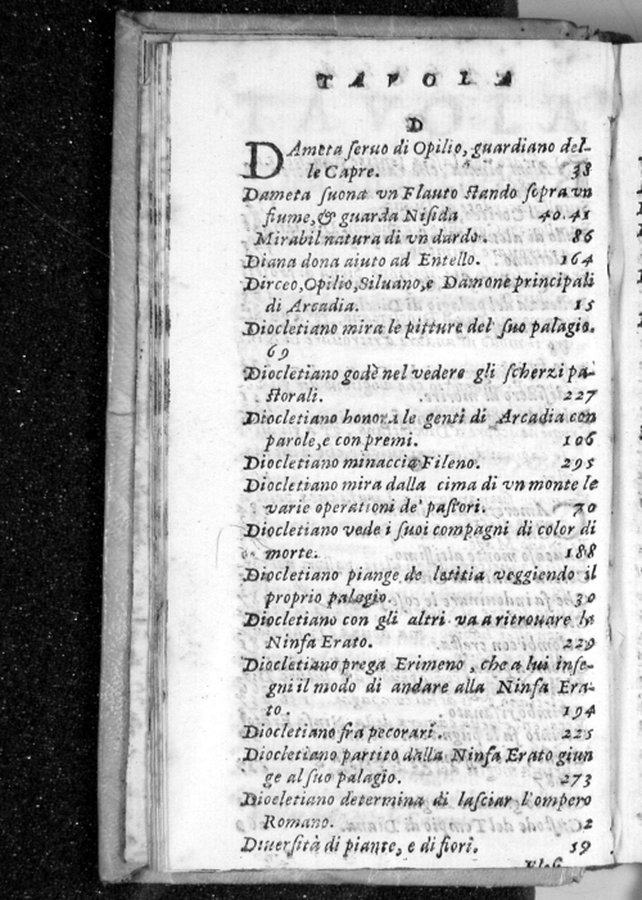 TAVOLA
D
DAmeta ſeruo di Opilio, guardiano del-
le Capre. 38
Dameta ſuona vn Flauto ſtando ſopra vn
fiume, & guarda Niſida 40.41
Mirabil natura di vn dardo. 86
Diana dona aiuto ad Entello. 164
Dirceo, Opilio, Siluano, e Damone principali
di Arcadia. 15
Diocletiano mira le pitture del ſuo palagio.
69
Diocletiano godè nel vedere gli ſcherzi pa-
ſtorali. 227
Diocletiano honora le genti di Arcadia con
parole, e con premi. 106
Diocletiano minaccia Fileno. 295
Diocletiano mira dalla cima di vn monte le
varie operationi de' paſtori. 70
Diocletiano vede i ſuoi compagni di color di
morte. 188
Diocletiano piange de letitia veggiendo il
proprio palagio. 30
Diocletiano con gli altri va a ritrouare la
Ninfa Erato. 229
Diocletiano prega Erimeno, che a lui inſe-
gni il modo di andare alla Ninfa Era-
to. 194
Diocletiano fra pecorari. 225
Diocletiano partito dalla Ninfa Erato giun
ge al ſuo palagio. 273
Diocletiano determina di laſciar l'ompero
Romano. 2
Diuerſità di piante, e di fiori. 19